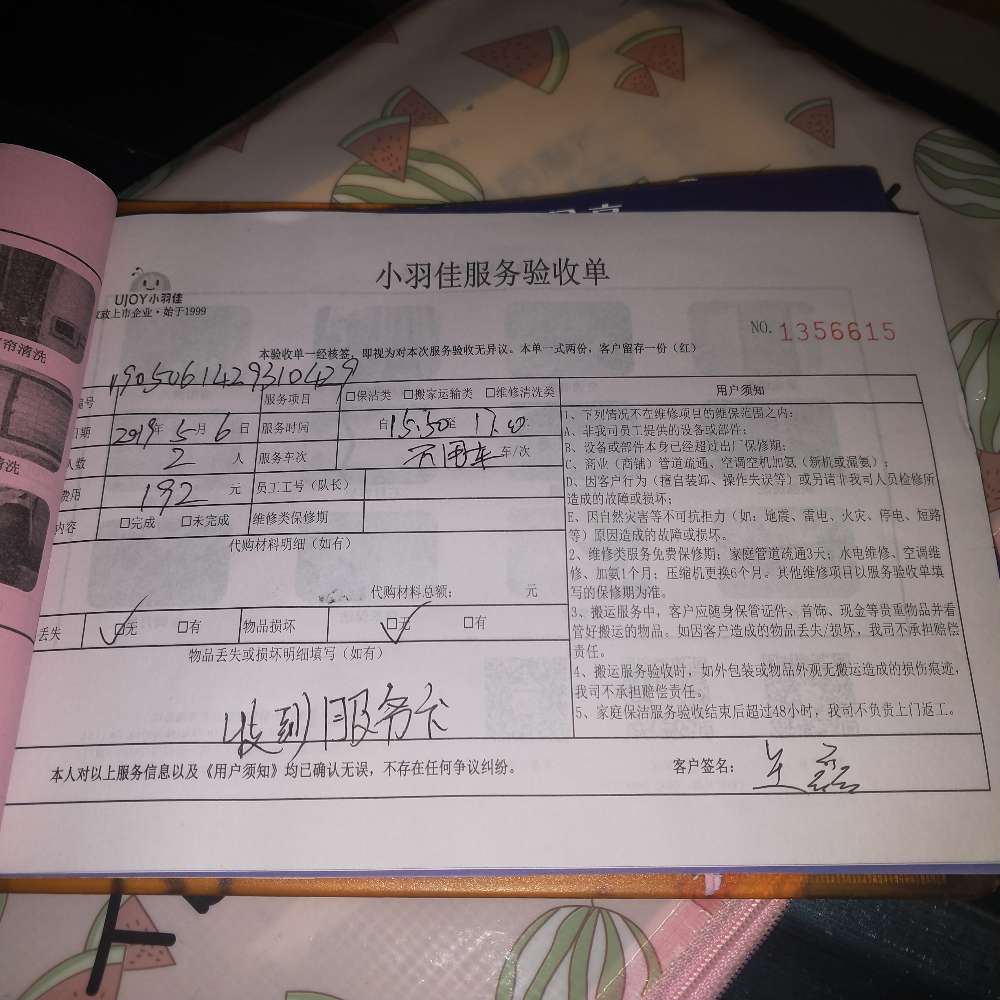 小羽佳服务验收单
UJOY小羽佳
政上市企业·始于1999
NO. 1356615
本验收单一经核签,即视为对本次服务验收无异议。本单一式两份,客户留存一份(红)
编号 1905061429310429 服务项目 □保洁类 □搬家运输类 □维修清洗类
日期 2019年5月6日 服务时间 自15:50至
人数 2 人 服务车次 不用车 车/次
费用 192 元 员工工号(队长)
内容 □完成 □未完成 维修类保修期
代购材料明细(如有)
代购材料总额: 元
丢失 □无 □有 物品损坏 □无 □有
物品丢失或损坏明细填写(如有)
收到服务卡
用户须知
1、下列情况不在维修项目的维保范围之内:
A、非我司员工提供的设备或部件;
B、设备或部件本身已经超过出厂保修期;
C、商业(商铺)管道疏通、空调空机加氨(新机或漏氨);
D、因客户行为(擅自装卸、操作失误等)或另请非我司人员检修所
造成的故障或损坏;
E、因自然灾害等不可抗拒力(如:地震、雷电、火灾、停电、短路
等)原因造成的故障或损坏。
2、维修类服务免费保修期:家庭管道疏通3天;水电维修、空调维
修、加氨1个月;压缩机更换6个月。其他维修项目以服务验收单填
写的保修期为准。
3、搬运服务中,客户应随身保管证件、首饰、现金等贵重物品并看
管好搬运的物品。如因客户造成的物品丢失/损坏,我司不承担赔偿
责任。
4、搬运服务验收时,如外包装或物品外观无搬运造成的损伤痕迹,
我司不承担赔偿责任。
5、家庭保洁服务验收结束后超过48小时,我司不负责上门返工。
本人对以上服务信息以及《用户须知》均已确认无误,不存在任何争议纠纷。
客户签名:
帘清洗
清洗